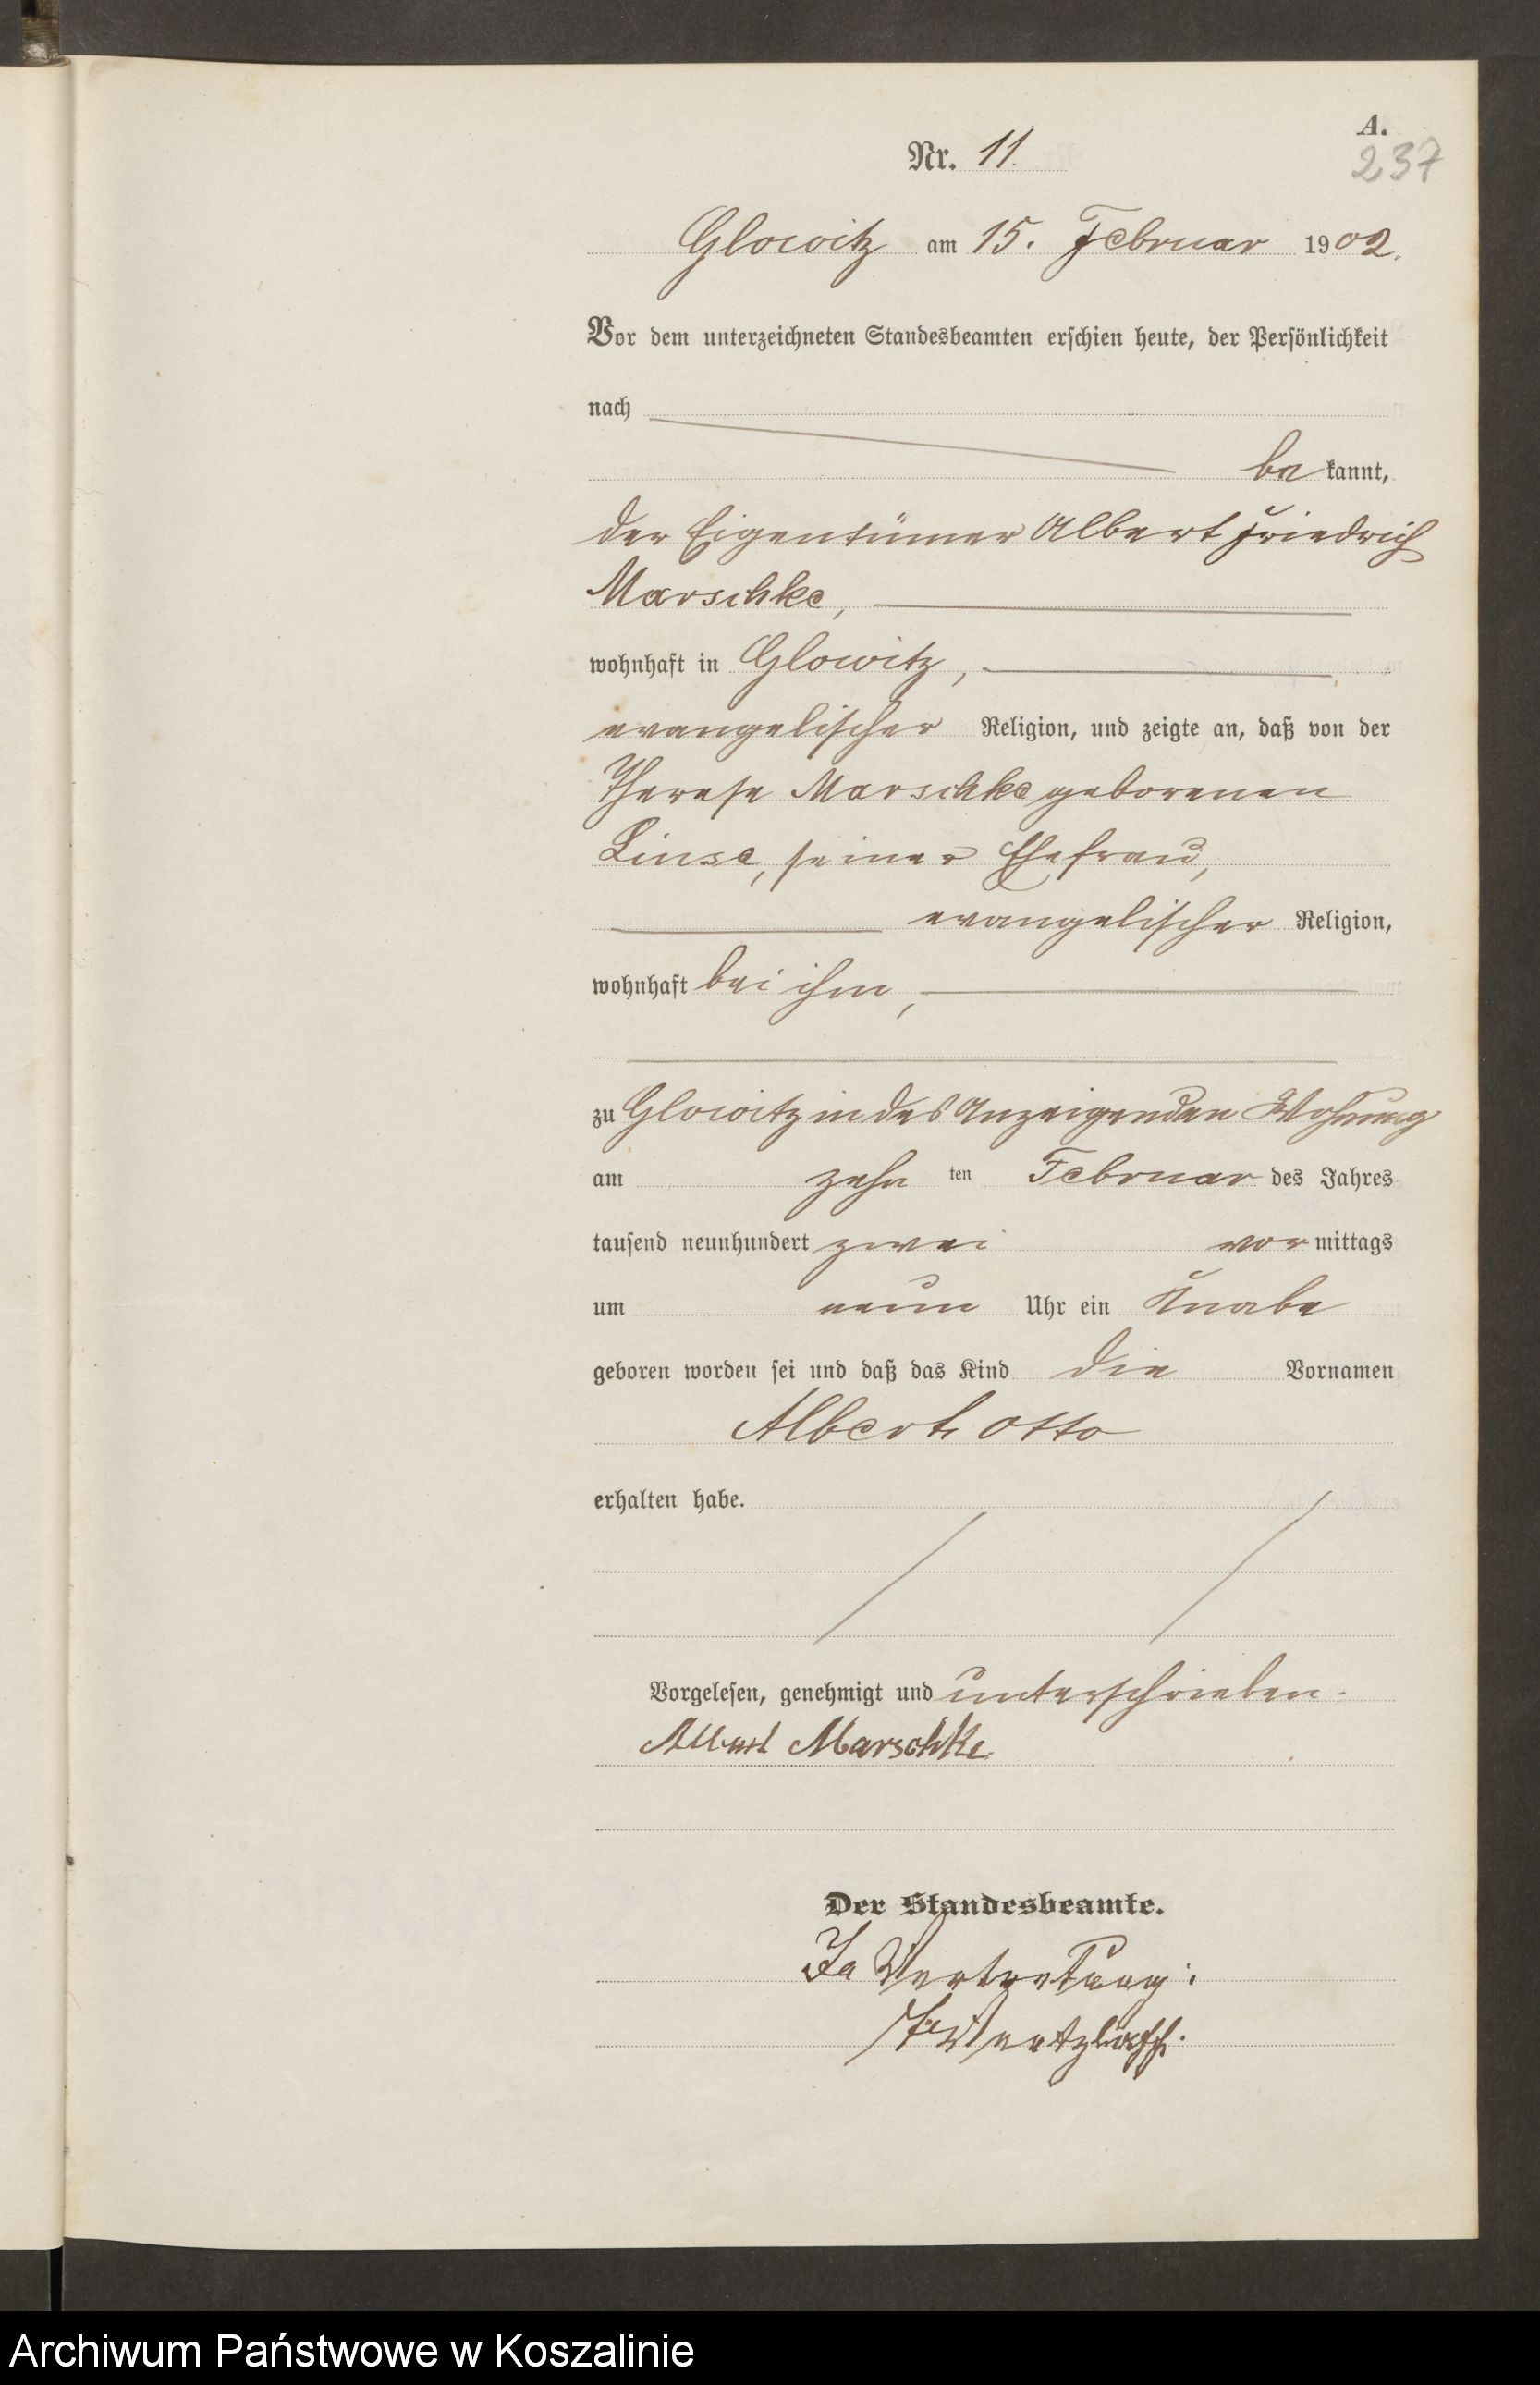 A.
Nr. 11.
237
Glowitz am 15. Februar 1902.
Vor dem unterzeichneten Standesbeamten erschien heute, der Persönlichkeit
nach
be kannt,
der Eigentümer Albert Friedrich
Marschke,
wohnhaft in Glowitz,
evangelischer Religion, und zeigte an, daß von der
Therese Marschke geborenen
Linse, seiner Ehefrau,
evangelischer Religion,
wohnhaft bei ihm,
zu Glowitz in des Anzeigenden Wohnung
am zehn ten Februar des Jahres
tausend neunhundert zwei vor mittags
um neun Uhr ein Knabe
geboren worden sei und daß das Kind die Vornamen
Albert Otto
erhalten habe.
Vorgelesen, genehmigt und unterschrieben.
Albert Marschke
Der Standesbeamte.
In Vertretung:
Archiwum Państwowe w Koszalinie